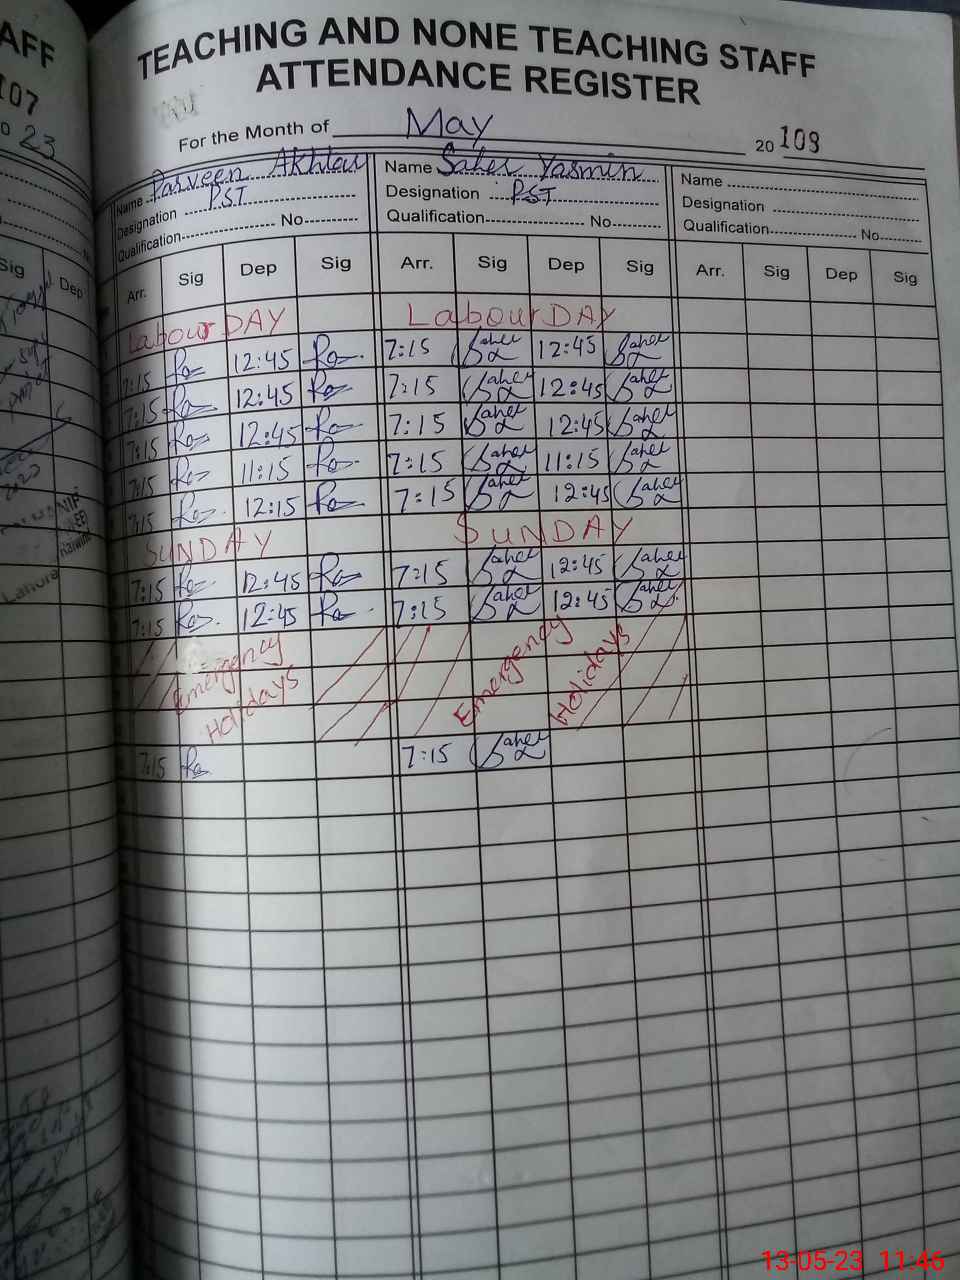 TEACHING AND NONE TEACHING STAFF
ATTENDANCE REGISTER
For the Month of May 20 108
Name Parveen Akhtar Name Saher Yasmin Name
Designation PST Designation PST Designation
Qualification No Qualification No Qualification No
Arr. Sig Dep Sig Arr. Sig Dep Sig Arr. Sig Dep Sig
Labour DAY Labour DAY
7:15 12:45 7:15 Saher 12:45 Saher
7:15 12:45 7:15 Saher 12:45 Saher
7:15 12:45 7:15 Saher 12:45 Saher
7:15 11:15 7:15 Saher 11:15 Saher
7:15 12:15 7:15 Saher 12:45 Saher
SUNDAY SUNDAY
7:15 12:45 7:15 Saher 12:45 Saher
7:15 12:45 7:15 Saher 12:45 Saher
Emergency Holidays Emergency Holidays
7:15 7:15 Saher
AFF
107
23
Sig Dep
Lahore
13-05-23 11:46